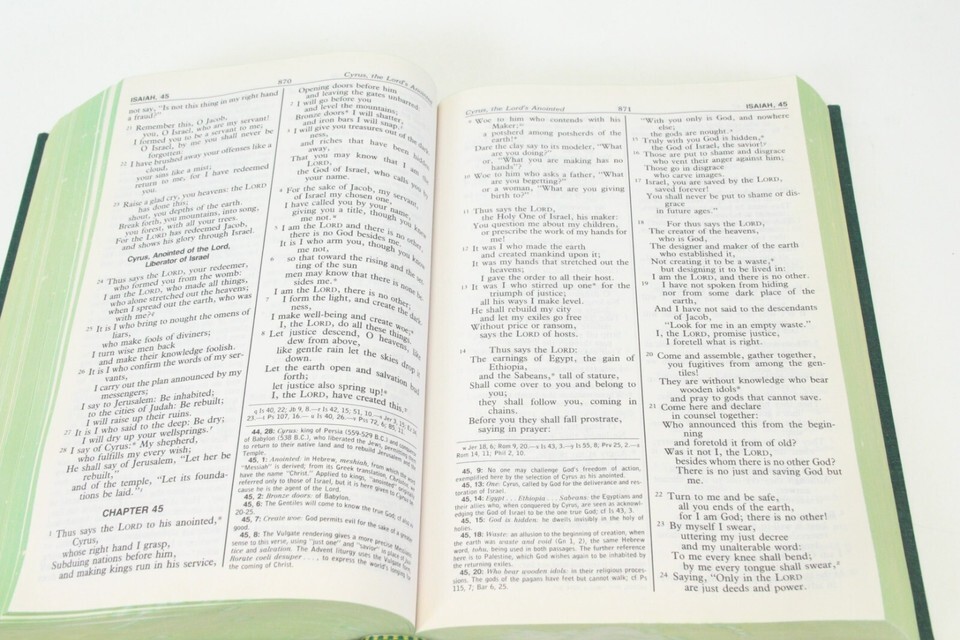 ISAIAH, 45
870
Cyrus, the Lord's Anointed
not say, "Is not this thing in my right hand
a fraud?"
21 Remember this, O Jacob,
you, O Israel, who are my servant!
I formed you to be a servant to me;
O Israel, by me you shall never be
forgotten:
22 I have brushed away your offenses like a
cloud,
your sins like a mist;
return to me, for I have redeemed
you.
23 Raise a glad cry, you heavens: the LORD
has done this;
shout, you depths of the earth.
Break forth, you mountains, into song,
you forest, with all your trees.
For the LORD has redeemed Jacob,
and shows his glory through Israel.
Cyrus, Anointed of the Lord,
Liberator of Israel
24 Thus says the LORD, your redeemer,
who formed you from the womb:
I am the LORD, who made all things,
who alone stretched out the heavens;
when I spread out the earth, who was
with me?
25 It is I who bring to nought the omens of
liars,
who make fools of diviners;
I turn wise men back
and make their knowledge foolish.
26 It is I who confirm the words of my ser-
vants,
I carry out the plan announced by my
messengers;
I say to Jerusalem: Be inhabited;
to the cities of Judah: Be rebuilt;
I will raise up their ruins.
27 It is I who said to the deep: Be dry;
I will dry up your wellsprings.
28 I say of Cyrus:* My shepherd,
who fulfills my every wish;
He shall say of Jerusalem, "Let her be
rebuilt,"
and of the temple, "Let its founda-
tions be laid."
CHAPTER 45
1 Thus says the LORD to his anointed,*
Cyrus,
whose right hand I grasp,
Subduing nations before him,
and making kings run in his service,
Opening doors before him
and leaving the gates unbarred:
2 I will go before you
and level the mountains;
Bronze doors* I will shatter,
and iron bars I will snap.
3 I will give you treasures out of the dark-
ness,
and riches that have been hidden
away,
That you may know that I am the
LORD,
the God of Israel, who calls you by
your name.
4 For the sake of Jacob, my servant,
of Israel my chosen one,
I have called you by your name,
giving you a title, though you knew
me not.*
5 I am the LORD and there is no other,
there is no God besides me.
It is I who arm you, though you know
me not,
6 so that toward the rising and the set-
ting of the sun
men may know that there is none be-
sides me.*
I am the LORD, there is no other;
7 I form the light, and create the dark-
ness,
I make well-being and create woe;*
I, the LORD, do all these things.
8 Let justice descend, O heavens, like
dew from above,
like gentle rain let the skies drop it
down.
Let the earth open and salvation bud
forth;
let justice also spring up!*
I, the LORD, have created this.
44, 28: Cyrus: king of Persia (559-529 B.C.) and conqueror
of Babylon (538 B.C.), who liberated the Jews, permitting them
to return to their native land and to rebuild Jerusalem and its
Temple.
45, 1: Anointed: in Hebrew, meshiah, from which the word
"Messiah" is derived; from its Greek translation, Christos, we
have the name "Christ." Applied to kings, "anointed" originally
referred only to those of Israel, but it is here given to Cyrus be-
cause he is the agent of the Lord.
45, 2: Bronze doors: of Babylon.
45, 6: The Gentiles will come to know the true God; cf also vv
20-25.
45, 7: Create woe: God permits evil for the sake of a greater
good.
45, 8: The Vulgate rendering gives a more precise Messianic
sense to this verse, using "just one" and "savior" in place of jus-
tice and salvation. The Advent liturgy uses the Vulgate form,
Rorate coeli desuper . . . to express the world's longing for
the coming of Christ.
Cyrus, the Lord's Anointed
871
ISAIAH, 45
9 Woe to him who contends with his
Maker;
a potsherd among potsherds of the
earth!*
Dare the clay say to its modeler, "What
are you doing?"
or, "What you are making has no
hands"?
10 Woe to him who asks a father, "What
are you begetting?"
or a woman, "What are you giving
birth to?"
11 Thus says the LORD,
the Holy One of Israel, his maker:
You question me about my children,
or prescribe the work of my hands for
me!
12 It was I who made the earth
and created mankind upon it;
It was my hands that stretched out the
heavens;
I gave the order to all their host.
13 It was I who stirred up one* for the
triumph of justice;
all his ways I make level.
He shall rebuild my city
and let my exiles go free
Without price or ransom,
says the LORD of hosts.
14 Thus says the LORD:
The earnings of Egypt, the gain of
Ethiopia,
and the Sabeans,* tall of stature,
Shall come over to you and belong to
you;
they shall follow you, coming in
chains.
Before you they shall fall prostrate,
saying in prayer:
w Jer 18, 6; Rom 9, 20.—x Is 43, 3.—y Is 55, 8; Prv 25, 2.—z
Rom 14, 11; Phil 2, 10.
45, 9: No one may challenge God's freedom of action,
exemplified here by the selection of Cyrus as his anointed.
45, 13: One: Cyrus, called by God for the deliverance and res-
toration of Israel.
45, 14: Egypt . . . Ethiopia . . . Sabeans: the Egyptians and
their allies who, when conquered by Cyrus, are seen as acknowl-
edging the God of Israel to be the one true God; cf Is 43, 3.
45, 15: God is hidden: he dwells invisibly in the holy of
holies.
45, 18: Waste: an allusion to the beginning of creation, when
the earth was waste and void (Gn 1, 2), the same Hebrew
word, tohu, being used in both passages. The further reference
here is to Palestine, which God wishes again to be inhabited by
the returning exiles.
45, 20: Who bear wooden idols: in their religious proces-
sions. The gods of the pagans have feet but cannot walk; cf Ps
115, 7; Bar 6, 25.
"With you only is God, and nowhere
else;
the gods are nought.
15 Truly with you God is hidden,*
the God of Israel, the savior!
16 Those are put to shame and disgrace
who vent their anger against him;
Those go in disgrace
who carve images.
17 Israel, you are saved by the LORD,
saved forever!
You shall never be put to shame or dis-
grace
in future ages."
18 For thus says the LORD,
The creator of the heavens,
who is God,
The designer and maker of the earth
who established it,
Not creating it to be a waste,*
but designing it to be lived in:
I am the LORD, and there is no other.
19 I have not spoken from hiding
nor from some dark place of the
earth,
And I have not said to the descendants
of Jacob,
"Look for me in an empty waste."
I, the LORD, promise justice,
I foretell what is right.
20 Come and assemble, gather together,
you fugitives from among the gen-
tiles!
They are without knowledge who bear
wooden idols*
and pray to gods that cannot save.
21 Come here and declare
in counsel together:
Who announced this from the begin-
ning
and foretold it from of old?
Was it not I, the LORD,
besides whom there is no other God?
There is no just and saving God but
me.
22 Turn to me and be safe,
all you ends of the earth,
for I am God; there is no other!
23 By myself I swear,
uttering my just decree
and my unalterable word:
To me every knee shall bend;
by me every tongue shall swear,
24 Saying, "Only in the LORD
are just deeds and power.